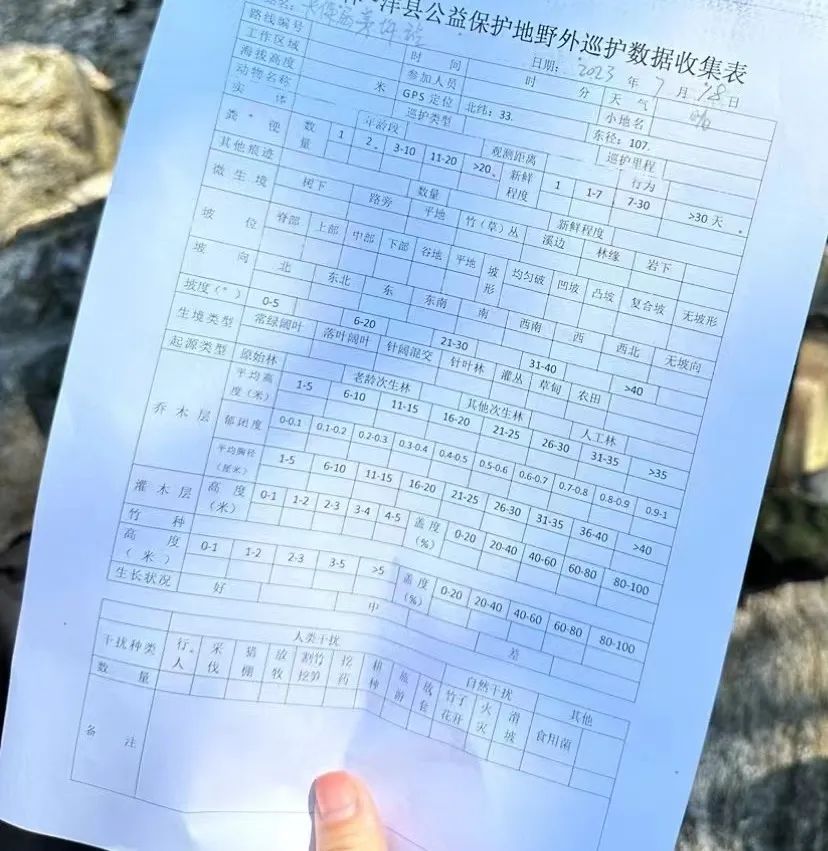 洋县公益保护地野外巡护数据收集表
日期: 2023 年 7 月 18 日
路线编号 时 间 时 分 天 气 晴
工作区域 参加人员 小地名
海拔高度 米 GPS 定位 北纬: 33. 东经: 107.
动物名称 巡护类型 巡护里程
实 体 数量 年龄段 观测距离 行为
粪 便 1 2 3-10 11-20 >20 新鲜程度 1 1-7 7-30 >30 天
其他痕迹 数量 新鲜程度
微生境 树下 路旁 平地 竹（草）丛 溪边 林缘 岩下
坡 位 脊部 上部 中部 下部 谷地 平地 坡形 均匀破 凹坡 凸坡 复合坡 无坡形
坡 向 北 东北 东 东南 南 西南 西 西北 无坡向
坡度(°) 0-5 6-20 21-30 31-40 >40
生境类型 常绿阔叶 落叶阔叶 针阔混交 针叶林 灌丛 草甸 农田
起源类型 原始林 老龄次生林 其他次生林 人工林
乔 木 层 平均高度(米) 1-5 6-10 11-15 16-20 21-25 26-30 31-35 >35
郁闭度 0-0.1 0.1-0.2 0.2-0.3 0.3-0.4 0.4-0.5 0.5-0.6 0.6-0.7 0.7-0.8 0.8-0.9 0.9-1
平均胸径(厘米) 1-5 6-10 11-15 16-20 21-25 26-30 31-35 36-40 >40
灌 木 层 高 度(米) 0-1 1-2 2-3 3-4 4-5 盖 度(%) 0-20 20-40 40-60 60-80 80-100
竹 种
高 度(米) 0-1 1-2 2-3 3-5 >5 盖 度(%) 0-20 20-40 40-60 60-80 80-100
生长状况 好 中 差
人类干扰 自然干扰 其他
干扰种类 行人 采伐 猎棚 放牧 割竹挖笋 挖药 耕种 旅游 放套 竹子花开 火灾 滑坡 食用菌
数 量
备 注